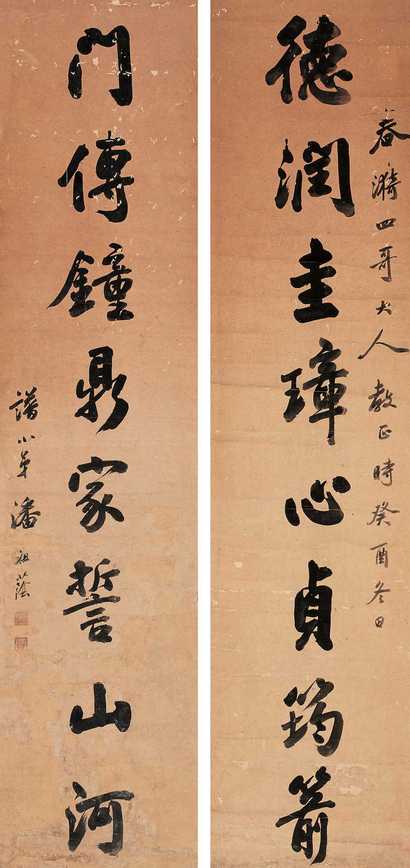 春漪四哥大人教正時癸酉冬日
德潤圭璋心貞筠箭
門傳鐘鼎家誓山河
譜小弟潘祖蔭